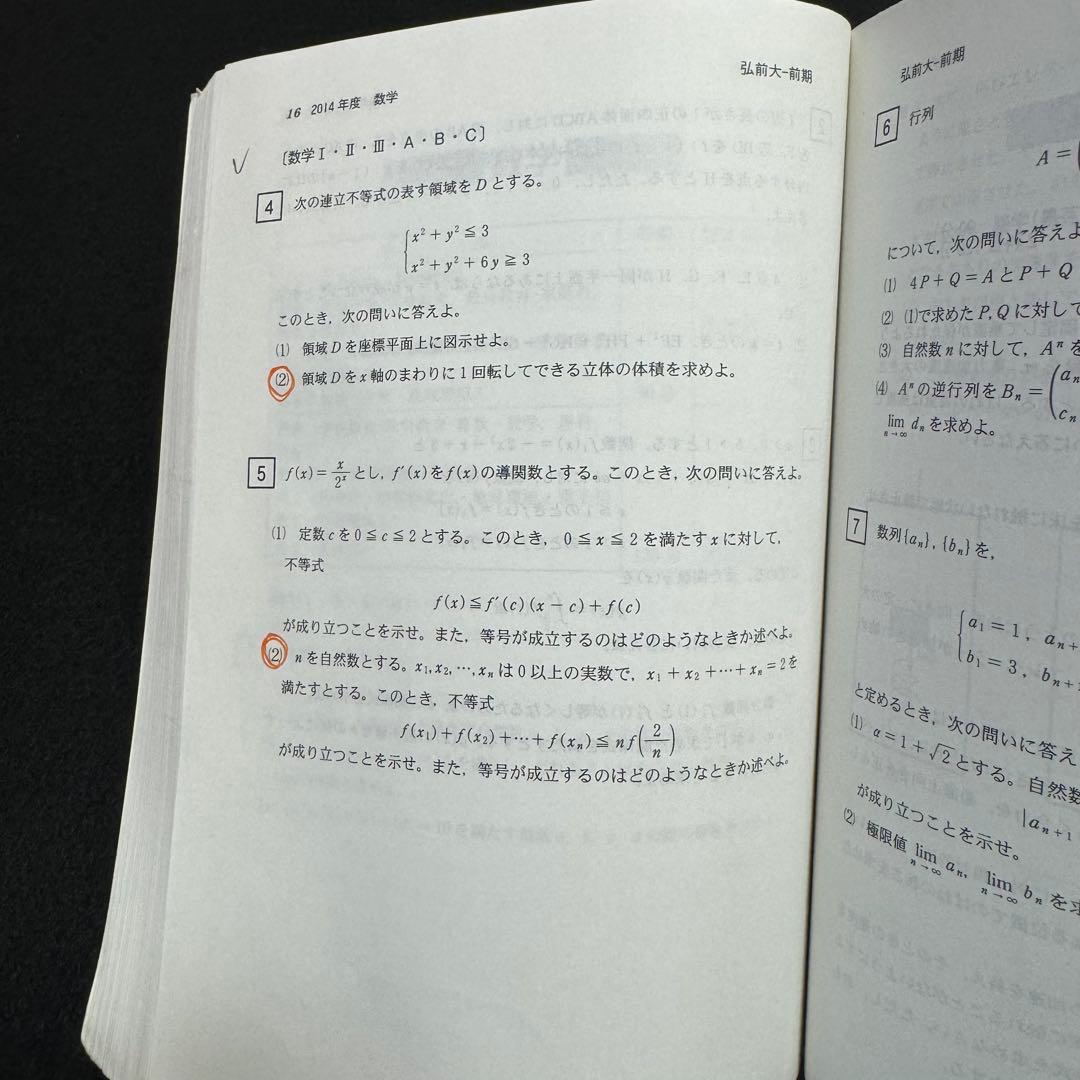 弘前大-前期
16 2014年度 数学
〔数学Ⅰ・Ⅱ・Ⅲ・A・B・C〕
4 次の連立不等式の表す領域を D とする。
x² + y² ≦ 3
x² + y² + 6y ≧ 3
このとき,次の問いに答えよ。
(1) 領域 D を座標平面上に図示せよ。
(2) 領域 D を x 軸のまわりに 1 回転してできる立体の体積を求めよ。
5 f(x) = x/2ˣ とし, f′(x) を f(x) の導関数とする。このとき,次の問いに答えよ。
(1) 定数 c を 0 ≦ c ≦ 2 とする。このとき, 0 ≦ x ≦ 2 を満たす x に対して,
不等式
f(x) ≦ f′(c)(x − c) + f(c)
が成り立つことを示せ。また,等号が成立するのはどのようなときか述べよ。
(2) n を自然数とする。x₁, x₂, …, xₙ は 0 以上の実数で, x₁ + x₂ + … + xₙ = 2 を
満たすとする。このとき,不等式
f(x₁) + f(x₂) + … + f(xₙ) ≦ nf(2/n)
が成り立つことを示せ。また,等号が成立するのはどのようなときか述べよ。
弘前大-前期
6 行列
A =
について,次の問いに答え
(1) 4P + Q = A と P + Q
(2) (1)で求めた P, Q に対して
(3) 自然数 n に対して, Aⁿ を
(4) Aⁿ の逆行列を Bₙ = (aₙ
cₙ
lim n→∞ dₙ を求めよ。
7 数列{aₙ}, {bₙ} を,
a₁ = 1, aₙ₊
b₁ = 3, bₙ₊
と定めるとき,次の問いに答え
(1) α = 1 + √2 とする。自然数
|aₙ₊₁
が成り立つことを示せ。
(2) 極限値 lim n→∞ aₙ, lim n→∞ bₙ を求